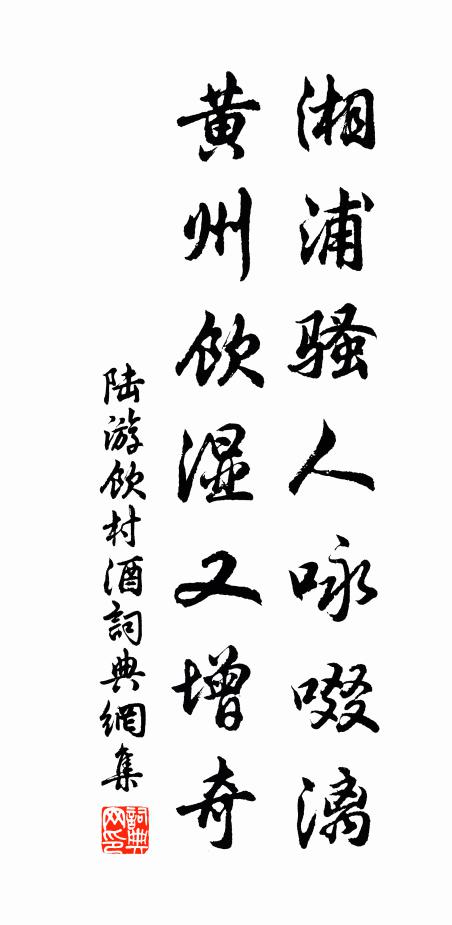 湘浦骚人咏啜漓
黄州饮湿又增奇
陆游饮村酒詞典網集
詞典网印